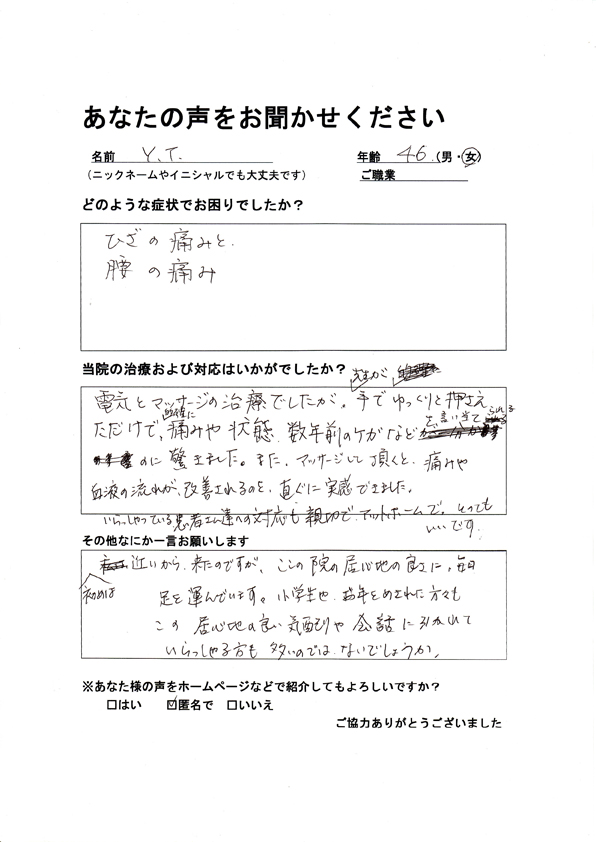 あなたの声をお聞かせください
名前 Y.T. 年齢 46 (男・女)
(ニックネームやイニシャルでも大丈夫です) ご職業
どのような症状でお困りでしたか？
ひざの痛みと、
腰の痛み
当院の治療および対応はいかがでしたか？
先生が
電気とマッサージの治療でしたが、手でゆっくりと押さえ
ただけで、的確に痛みや状態、数年前のケガなどを言い当てられる
のに驚きました。また、マッサージして頂くと、痛みや
血液の流れが、改善されるのを、直ぐに実感できました。
いらっしゃっている患者さん達への対応も親切で、アットホームで、とっても
いいです。
その他なにか一言お願いします
初めは近いから、来たのですが、ここの院の居心地の良さに、毎日
足を運んでいます。小学生や、お年をめされた方々も
この居心地の良い気配りや会話に引かれて
いらっしゃる方も多いのでは、ないでしょうか。
※あなた様の声をホームページなどで紹介してもよろしいですか？
□はい ☑匿名で □いいえ
ご協力ありがとうございました